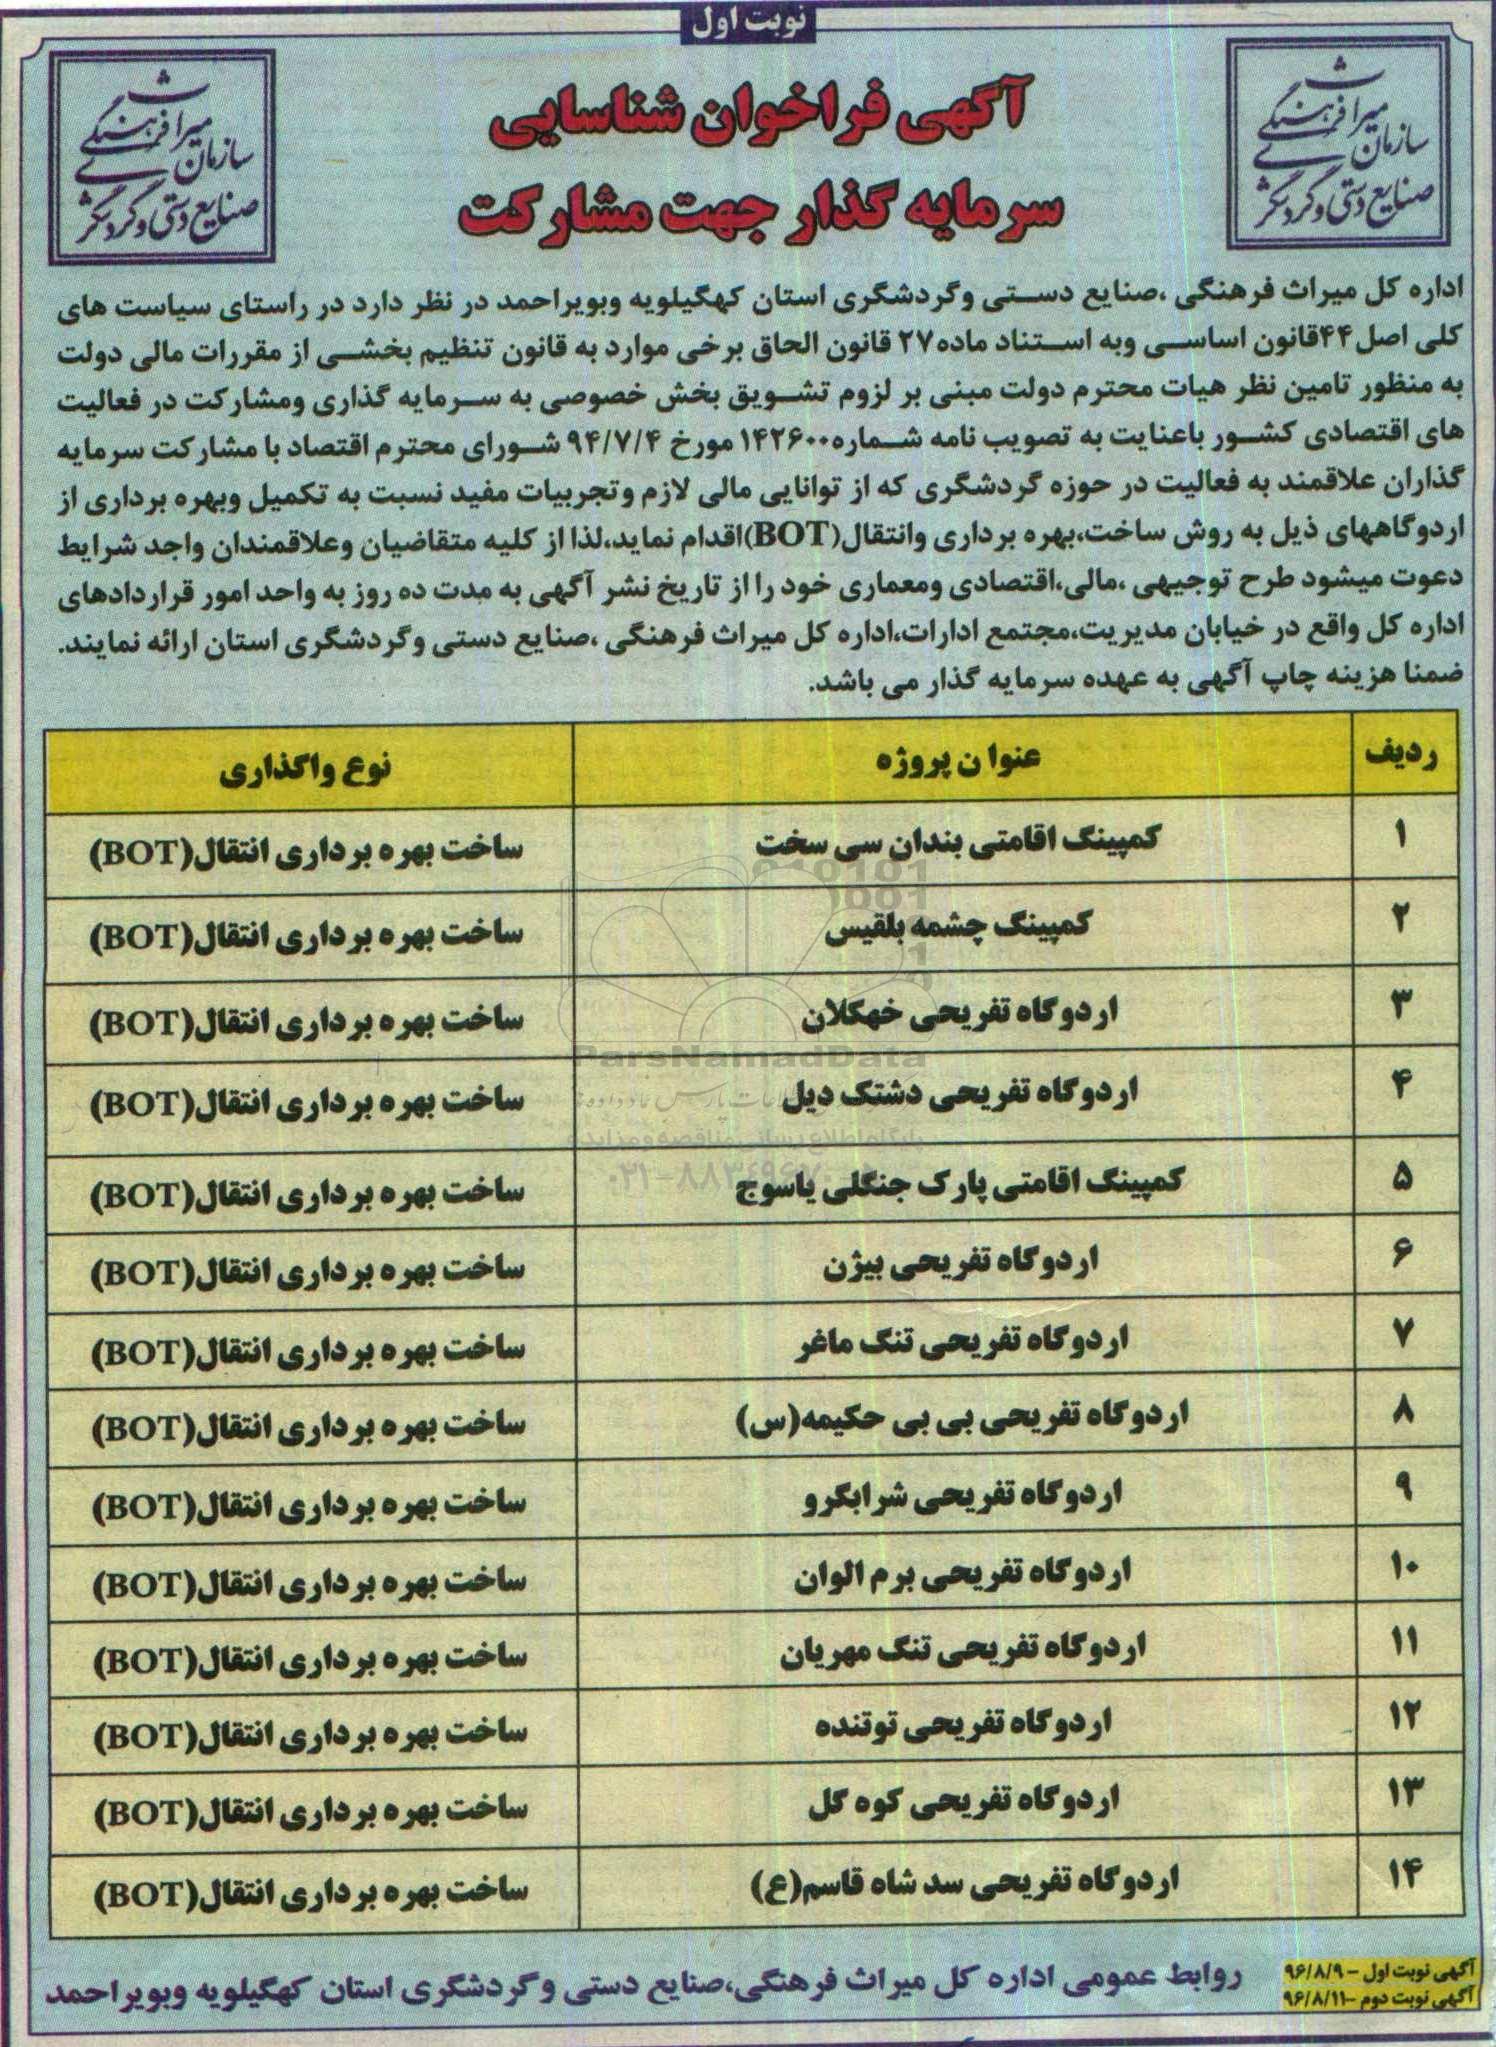 نوبت اول
آگهی فراخوان شناسایی
سرمایه گذار جهت مشارکت
سازمان میراث فرهنگی
صنایع دستی و گردشگری
سازمان میراث فرهنگی
صنایع دستی و گردشگری
اداره کل میراث فرهنگی ،صنایع دستی وگردشگری استان کهگیلویه وبویراحمد در نظر دارد در راستای سیاست های
کلی اصل۴۴قانون اساسی وبه استناد ماده۲۷ قانون الحاق برخی موارد به قانون تنظیم بخشی از مقررات مالی دولت
به منظور تامین نظر هیات محترم دولت مبنی بر لزوم تشویق بخش خصوصی به سرمایه گذاری ومشارکت در فعالیت
های اقتصادی کشور باعنایت به تصویب نامه شماره۱۴۲۶۰۰مورخ ۹۴/۷/۴ شورای محترم اقتصاد با مشارکت سرمایه
گذاران علاقمند به فعالیت در حوزه گردشگری که از توانایی مالی لازم وتجربیات مفید نسبت به تکمیل وبهره برداری از
اردوگاههای ذیل به روش ساخت،بهره برداری وانتقال(BOT)اقدام نماید،لذا از کلیه متقاضیان وعلاقمندان واجد شرایط
دعوت میشود طرح توجیهی ،مالی،اقتصادی ومعماری خود را از تاریخ نشر آگهی به مدت ده روز به واحد امور قراردادهای
اداره کل واقع در خیابان مدیریت،مجتمع ادارات،اداره کل میراث فرهنگی ،صنایع دستی وگردشگری استان ارائه نمایند.
ضمنا هزینه چاپ آگهی به عهده سرمایه گذار می باشد.
ردیف عنوان پروژه نوع واگذاری
۱ کمپینگ اقامتی بندان سی سخت ساخت بهره برداری انتقال(BOT)
۲ کمپینگ چشمه بلقیس ساخت بهره برداری انتقال(BOT)
۳ اردوگاه تفریحی خهکلان ساخت بهره برداری انتقال(BOT)
۴ اردوگاه تفریحی دشتک دیل ساخت بهره برداری انتقال(BOT)
۵ کمپینگ اقامتی پارک جنگلی یاسوج ساخت بهره برداری انتقال(BOT)
۶ اردوگاه تفریحی بیژن ساخت بهره برداری انتقال(BOT)
۷ اردوگاه تفریحی تنگ ماغر ساخت بهره برداری انتقال(BOT)
۸ اردوگاه تفریحی بی بی حکیمه(س) ساخت بهره برداری انتقال(BOT)
۹ اردوگاه تفریحی شرابگرو ساخت بهره برداری انتقال(BOT)
۱۰ اردوگاه تفریحی برم الوان ساخت بهره برداری انتقال(BOT)
۱۱ اردوگاه تفریحی تنگ مهریان ساخت بهره برداری انتقال(BOT)
۱۲ اردوگاه تفریحی توتنده ساخت بهره برداری انتقال(BOT)
۱۳ اردوگاه تفریحی کوه گل ساخت بهره برداری انتقال(BOT)
۱۴ اردوگاه تفریحی سد شاه قاسم(ع) ساخت بهره برداری انتقال(BOT)
ParsNamadData
پایگاه اطلاع رسانی مناقصه و مزایده
آگهی نوبت اول -۹۶/۸/۹
آگهی نوبت دوم -۹۶/۸/۱۱
روابط عمومی اداره کل میراث فرهنگی،صنایع دستی وگردشگری استان کهگیلویه وبویراحمد